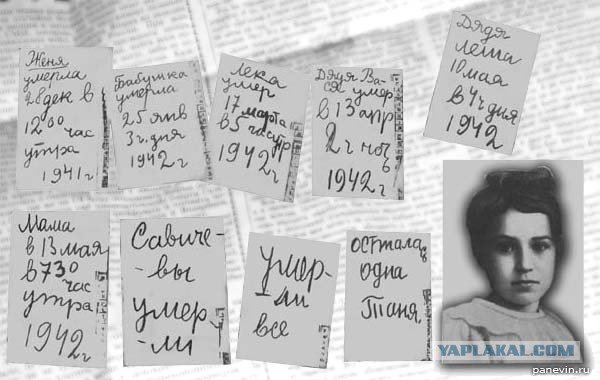 Женя
умерла
28 дек в
12 00 час
утра
1941 г
Бабушка
умерла
25 янв
3 ч. дня
1942 г
Лека
умер
17 марта
в 5 час утр
1942 г
Дядя Ва-
ся умер
в 13 апр
2 ч ночь
1942 г
Дядя
Леша
10 мая
в 4 ч дня
1942
Мама
в 13 мая
в 7 30
час
утра
1942 г
Савиче-
-вы
умер-
-ли
умер-
-ли
все
осталась
одна
Таня
YAPLAKAL.COM
panevin.ru